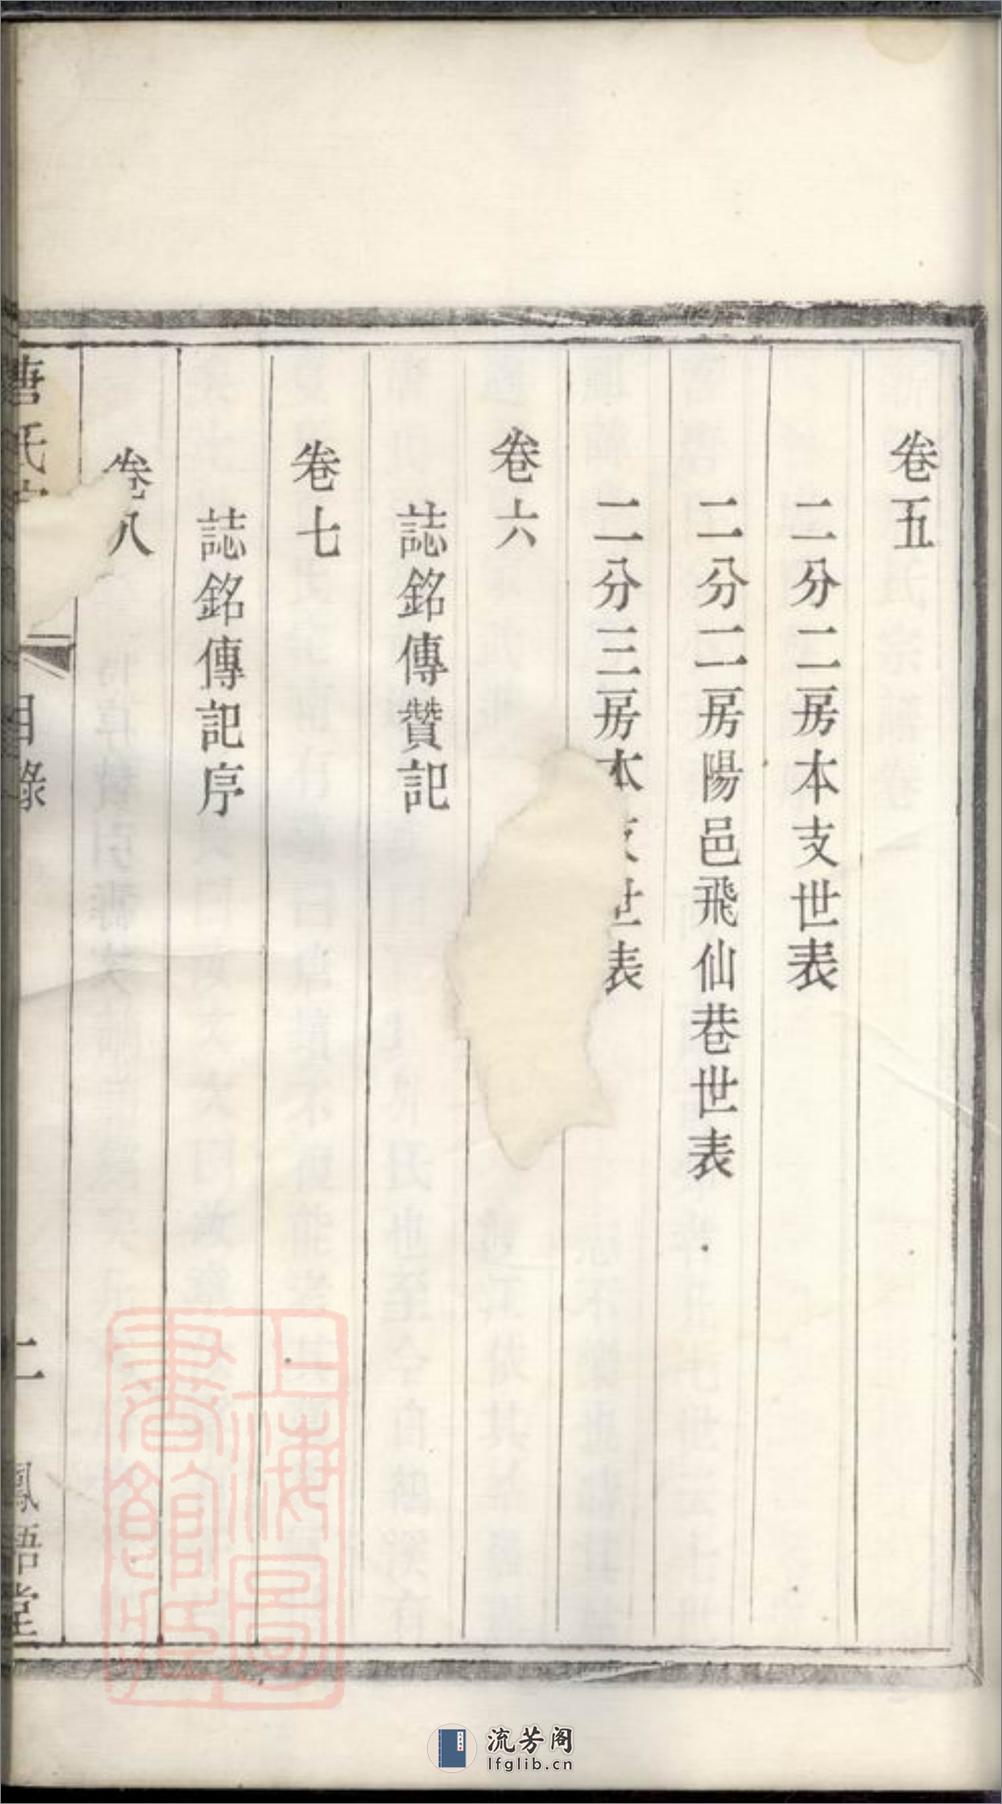 卷五
二分二房本支世表
二分二房陽邑飛仙巷世表
二分三房本支世表
卷六
誌銘傳贊記
卷七
誌銘傳記序
卷八
唐氏
目錄
二
鳳梧堂
上海圖書館藏
流芳阁
lfglib.cn